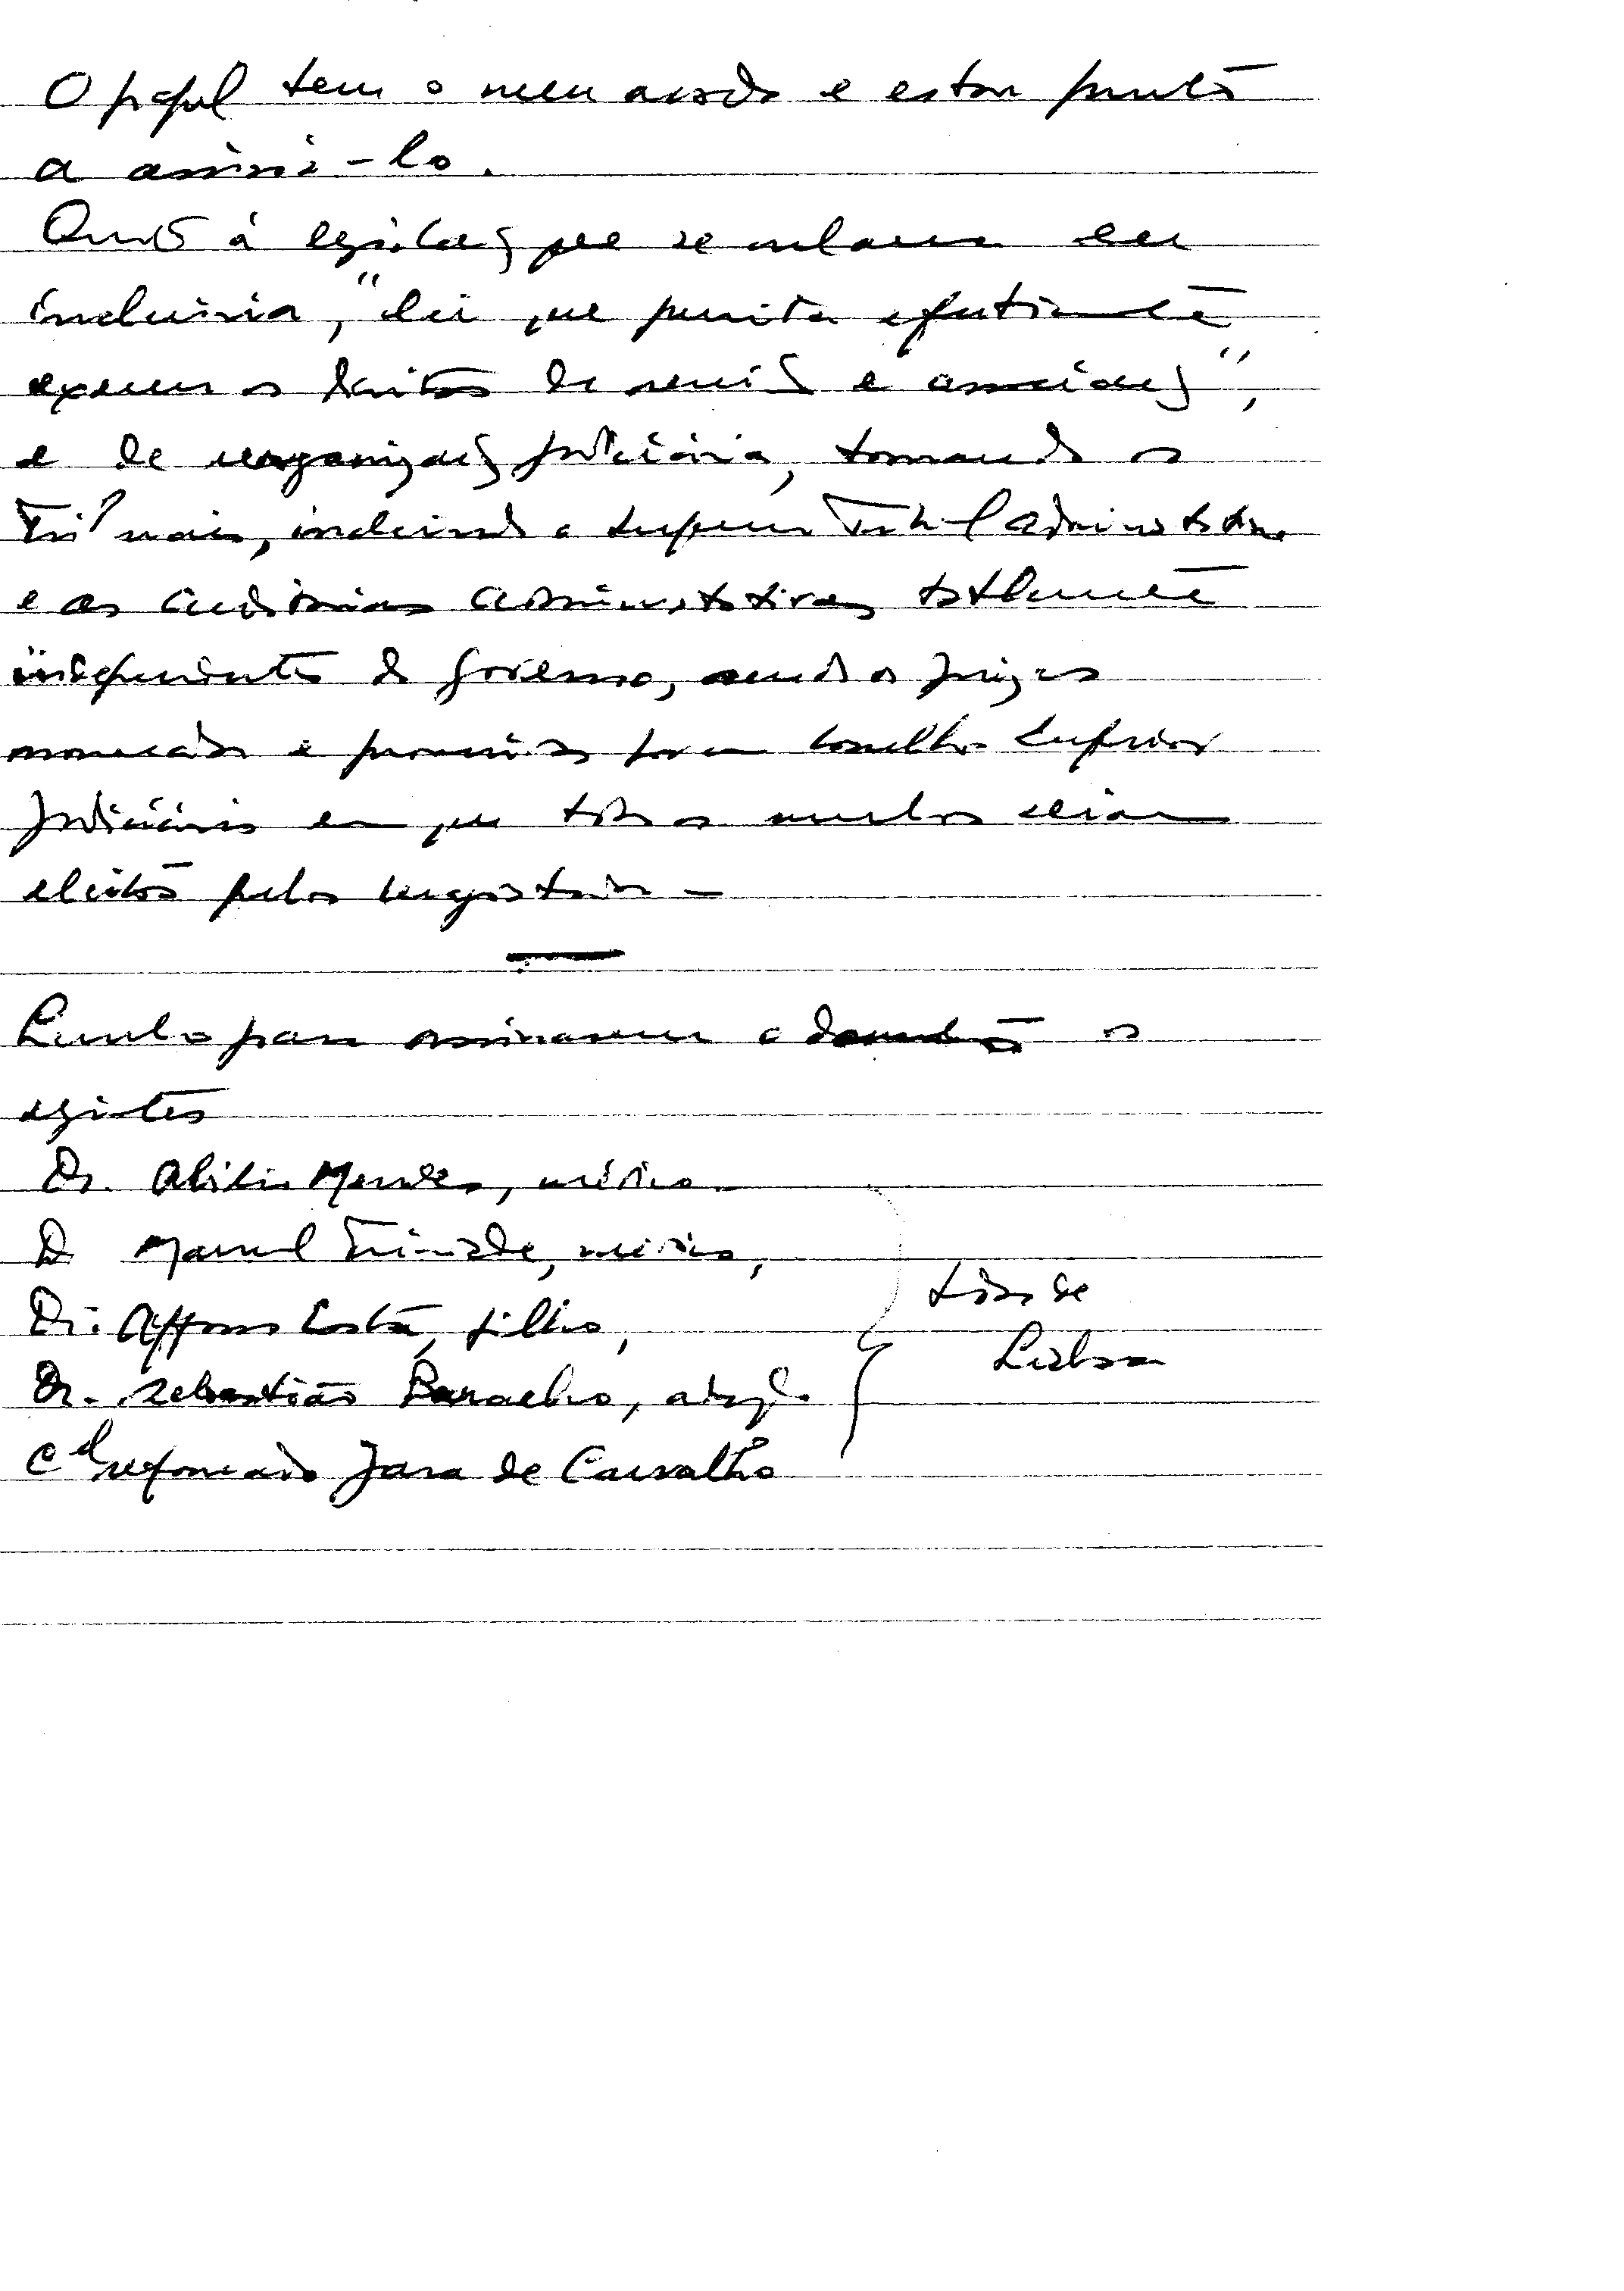 O papel tem o meu acordo e estou pronto
a assiná-lo.
Quanto à legislação que se reclama eu
incluiria, "lei que permita efectivamente
exercer os direitos de reunião e associação",
e de reorganização judiciária, tornando os
Tribunais, incluindo o Supremo Tribunal Administrativo
e as auditorias administrativas totalmente
independentes do governo, sendo os juizes
nomeados e promovidos por um Conselho Superior
Judiciário em que todos os membros seriam
eleitos pelos magistrados —
Lembro para assinarem o documento os
seguintes
Dr. Abílio Mendes, médico
Dr Manuel Trindade, médico,
Dr. Affonso Costa, filho,
Dr. Sebastião Ramalho, advog.do
C.el reformado Jara de Carvalho
todos de
Lisboa